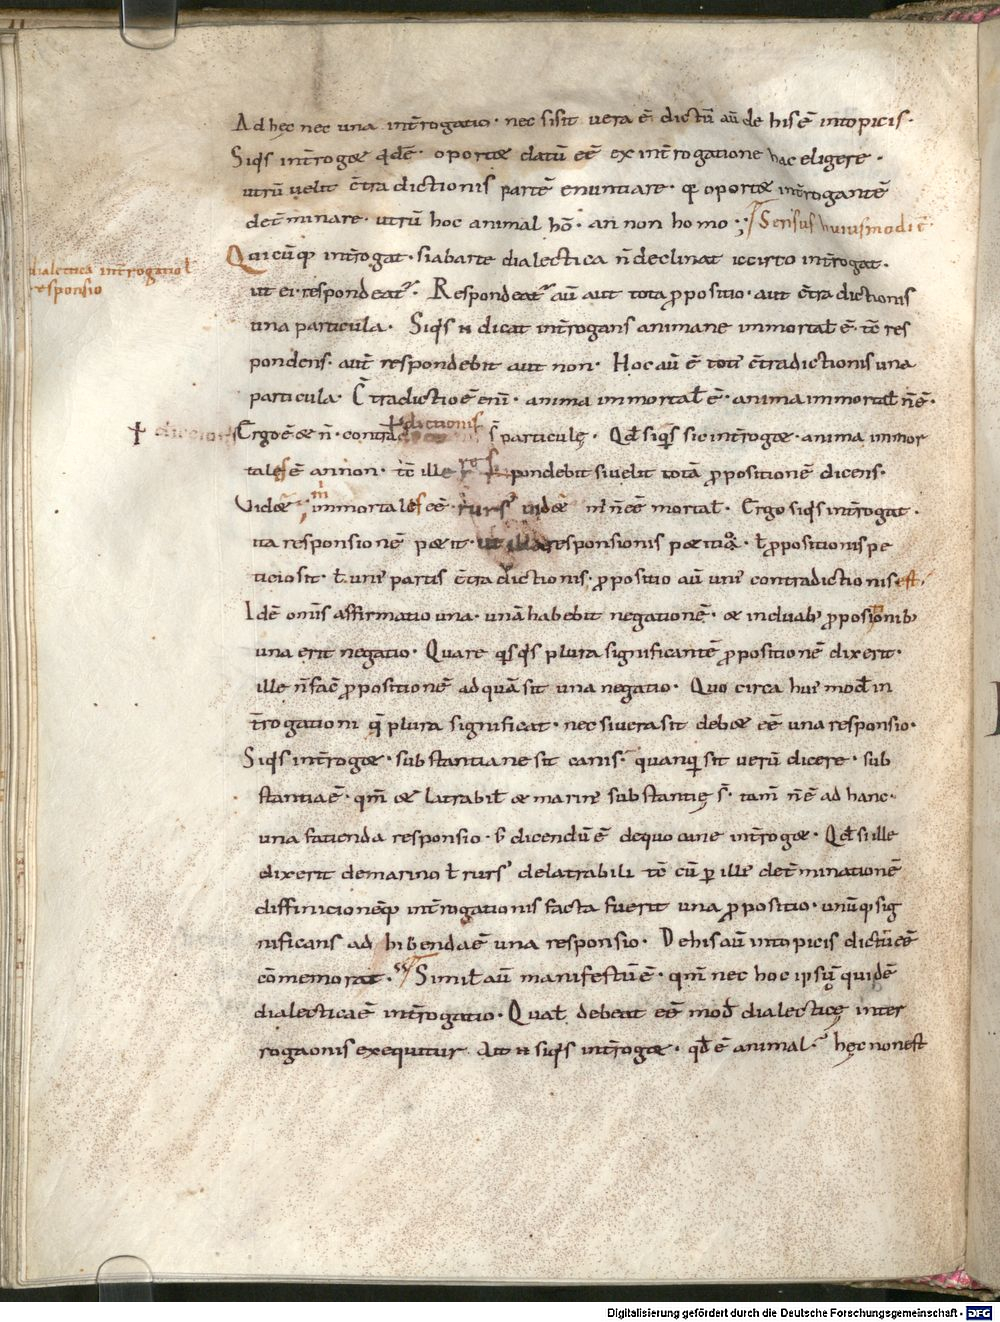 Ad hęc nec una int̄rogatio · nec si sit vera ē dictū aū de his ē in topicis ·
Siq̇s int̄roget qd ē · oportet datū eē ex int̄rogatione hac eligere ·
utrū velit c̄tradictionis partē enuntiare · q; oportet int̄rogantē
det̄minare · utrū hoc animal hō · an non homo ·;· Sensus huiusmodi ē
Quicūq; int̄rogat · si ab arte dialectica n̄ declinat iccirco int̄rogat ·
dialectica int̄rogatio ł
responsio
ut ei respondeat᷑ · Respondeat᷑ aū aut tota p̱positio · aut c̄tradictionis
una particula · Siq̇s n̄ dicat int̄rogans animane immortał ē · tc̄ res
pondens · aut̄ respondebit aut non · Hoc aū ē toti᷒ c̄tradictionis una
particula · C̄tradictio ē eni᷒ · anima immortał ē · anima immortał n̄ ē ·
Ergo ē & n̄ · contradictionis s̄ particulę · Qđ siq̇s sic int̄roget · anima immor
tales ē an non · tc̄ ille respondebit si velit totā p̱positionē dicens ·
Videt᷑ m̄ immortales eē · rurs᷒ videt᷑ m̄ n̄ eē mortał · Ergo siq̇s int̄rogat ·
ita responsionē petit · responsionis petitio · ł p̱positionis pe
ticio sit · ł uni᷒ partis c̄tradictionis · p̱positio aū uni᷒ contradictionis est ·
Idē om̄is affirmatio una · unā habebit negationē · & in duab᷒ p̱positionib᷒
una erit negatio · Quare q̇sq̇s plura significantē p̱positionē dixerit ·
ille n̄ facit p̱positionē ad quā sit una negatio · Quo circa hui᷒ modi in
t̄rogationi q̨ plura significat · nec si vera sit debet eē una responsio ·
Siq̇s int̄roget · substantia ne sit canis · quanquā sit verū dicere · sub
stantia ē · qm̄ & latrabił & marin᷒ substantię s̄ · tam̄ n̄ ē ad hanc ·
una fatienda responsio · s; dicendū ē de quo cane int̄roget · Qđ si ille
dixerit de marino ł rurs᷒ de latrabili tc̄ cū p̱ ille det̄minationē
diffinicionēq; int̄rogationis facta fuerit una p̱positio · unūq; sig
nificans adhibenda ē una responsio · De his aū in topicis dictū eē
cōmemorat · Similit̄ aū manifestū ē · qm̄ nec hoc ipsū quidē
dialectica ē int̄rogatio · Qualit̄ debeat eē modi dialecticę inter
rogationis exequitur · Ait n̄ siq̇s int̄roget · qd ē animal · hęc non est
Digitalisierung gefördert durch die Deutsche Forschungsgemeinschaft · DFG